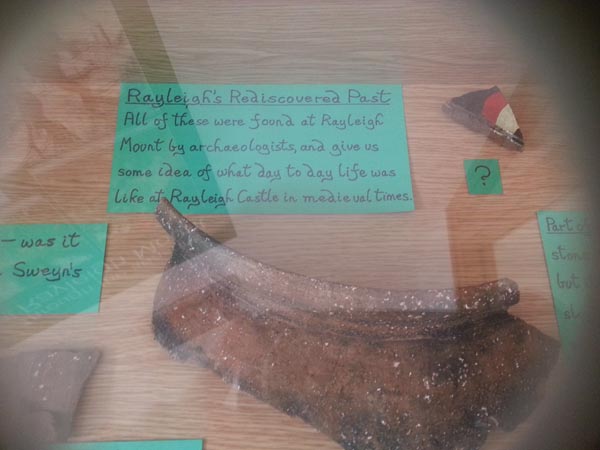 Rayleigh's Rediscovered Past
All of these were found at Rayleigh
Mount by archaeologists, and give us
some idea of what day to day life was
like at Rayleigh Castle in medieval times.
?
— was it
Sweyn's
Part of
but